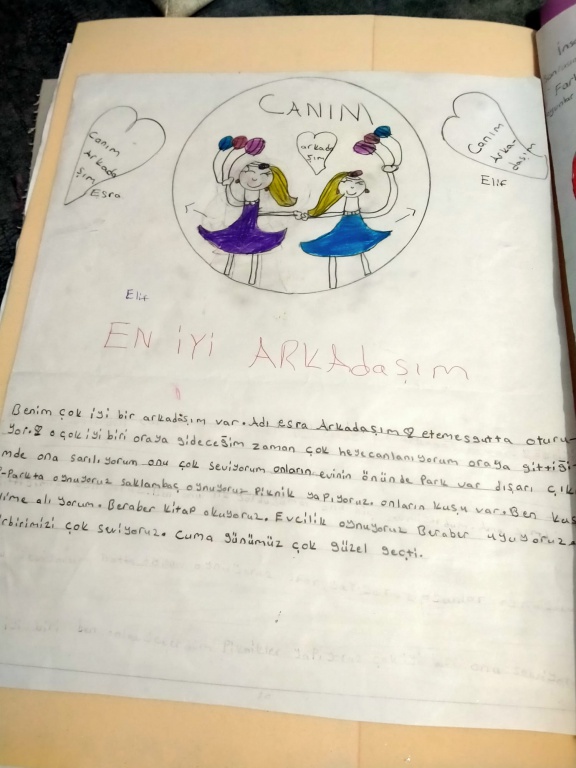 CANIM
arkada
şım
Canım
Arkada
şım
Esra
Canım
Arka
daşım
Elif
Elif
EN İYİ ARKAdaşım
Benim çok iyi bir arkadaşım var. Adı esra Arkadaşım etemesgutta oturu-
yor. o çok iyi biri oraya gideceğim zaman çok heyecanlanıyorum oraya gittiği-
mde ona sarılıyorum onu çok seviyorum onların evinin önünde Park var dışarı çık
Parkta oynuyoruz saklambaç oynuyoruz Piknik yapıyoruz. onların kuşu var. Ben kuş
alıyorum. Beraber kitap okuyoruz. Evcilik oynuyoruz Beraber uyuyoruz.
irbirimizi çok seviyoruz. Cuma günümüz çok güzel geçti.